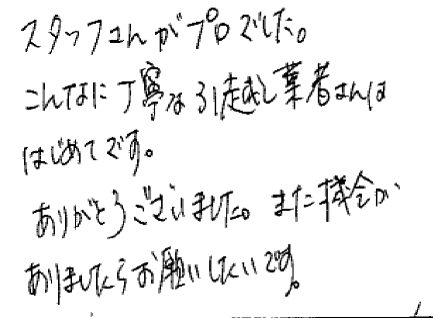 スタッフさんがプロでした。
こんなに丁寧な引越し業者さんは
はじめてです。
ありがとうございました。また機会が
ありましたらお願いしたいです。